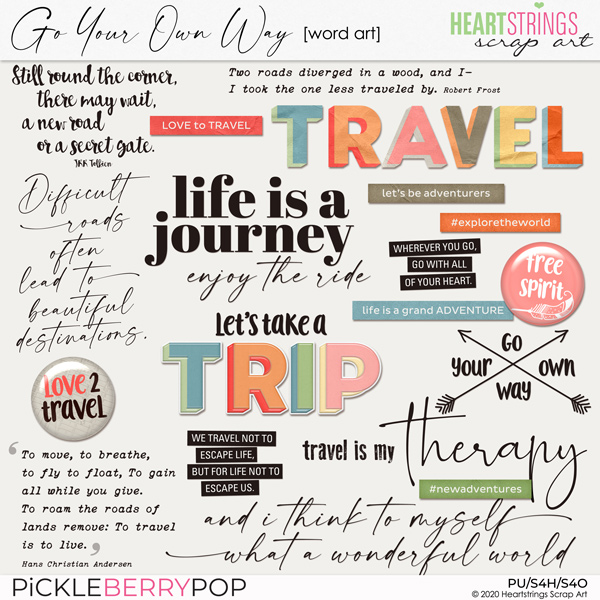 Go Your Own Way [word art]
HEARTSTRINGS
scrap art
Still round the corner,
there may wait,
a new road
or a secret gate.
JRR Tolkien
Two roads diverged in a wood, and I-
I took the one less traveled by. Robert Frost
LOVE to TRAVEL
TRAVEL
Difficult
roads
often
lead to
beautiful
destinations.
life is a
journey
enjoy the ride
let's be adventurers
#exploretheworld
WHEREVER YOU GO,
GO WITH ALL
OF YOUR HEART.
free
spirit
life is a grand ADVENTURE
Let's take a
TRIP
GO
your own
way
LOVE 2
travel
WE TRAVEL NOT TO
ESCAPE LIFE,
BUT FOR LIFE NOT TO
ESCAPE US.
travel is my therapy
#newadventures
‘To move, to breathe,
to fly to float, To gain
all while you give.
To roam the roads of
lands remove: To travel
is to live.’
Hans Christian Andersen
and i think to myself
what a wonderful world
PiCKLEBERRYPOP
PU/S4H/S4O
©2020 Heartstrings Scrap Art